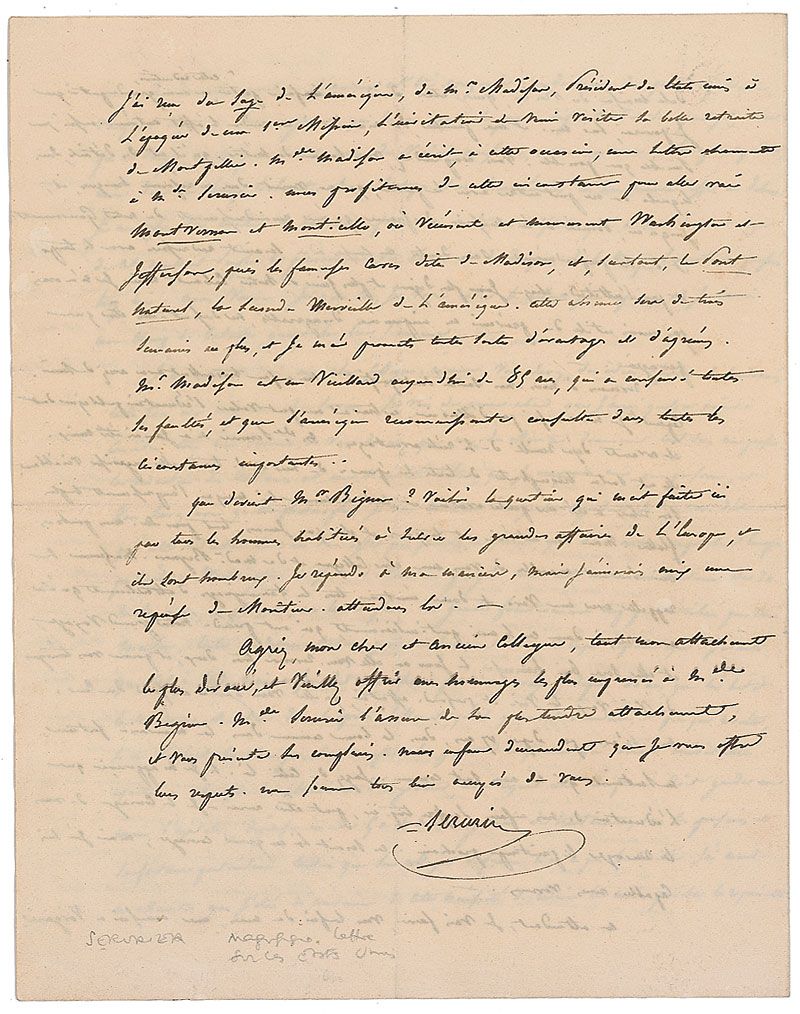 J'ai reçu du Sage de l'amérique, de Mr. Madison, Président des Etats unis à
l'époque de ma 1ere Mission, l'invitation de venir visiter sa belle retraite
de Montpellier. Mde Madison a écrit, à cette occasion, une lettre charmante
à Mde Serurier. nous profiterons de cette circonstance pour aller voir
Mont Vernon et Monticello, où vécurent et moururent Washington et
Jefferson, puis les fameuses Caves dites de Madison, et, surtout, le Pont
naturel, la seconde Merveille de l'amérique. cette absence sera de trois
semaines au plus, et Je m'en promets toute sorte d'avantages et d'agrémens.
Mr. Madison est un Vieillard aujourd'hui de 85 ans, qui a conservé toutes
ses facultés, et que l'amérique reconnaissante consulte dans toutes les
circonstances importantes..
que devient Mr. Bignon? Voilà la question qui m'est faite ici
par tous les hommes habitués à suivre les grandes affaires de l'Europe, et
ils sont nombreux. Je réponds à ma manière, mais j'aimerais mieux une
réponse du Moniteur. attendons la. —
Agréez, mon cher et ancien Collegue, tout mon attachement
le plus dévoué, et Veuillez offrir mes hommages les plus empressés à Mde
Bignon. Mde Serurier l'assure de son plus tendre attachement,
et vous présente ses complimens. nos enfans demandent que Je vous offre
leurs respects. nous sommes tous bien occupés de vous.
Serurier
SERURIER magnifique lettre
sur les Etats Unis